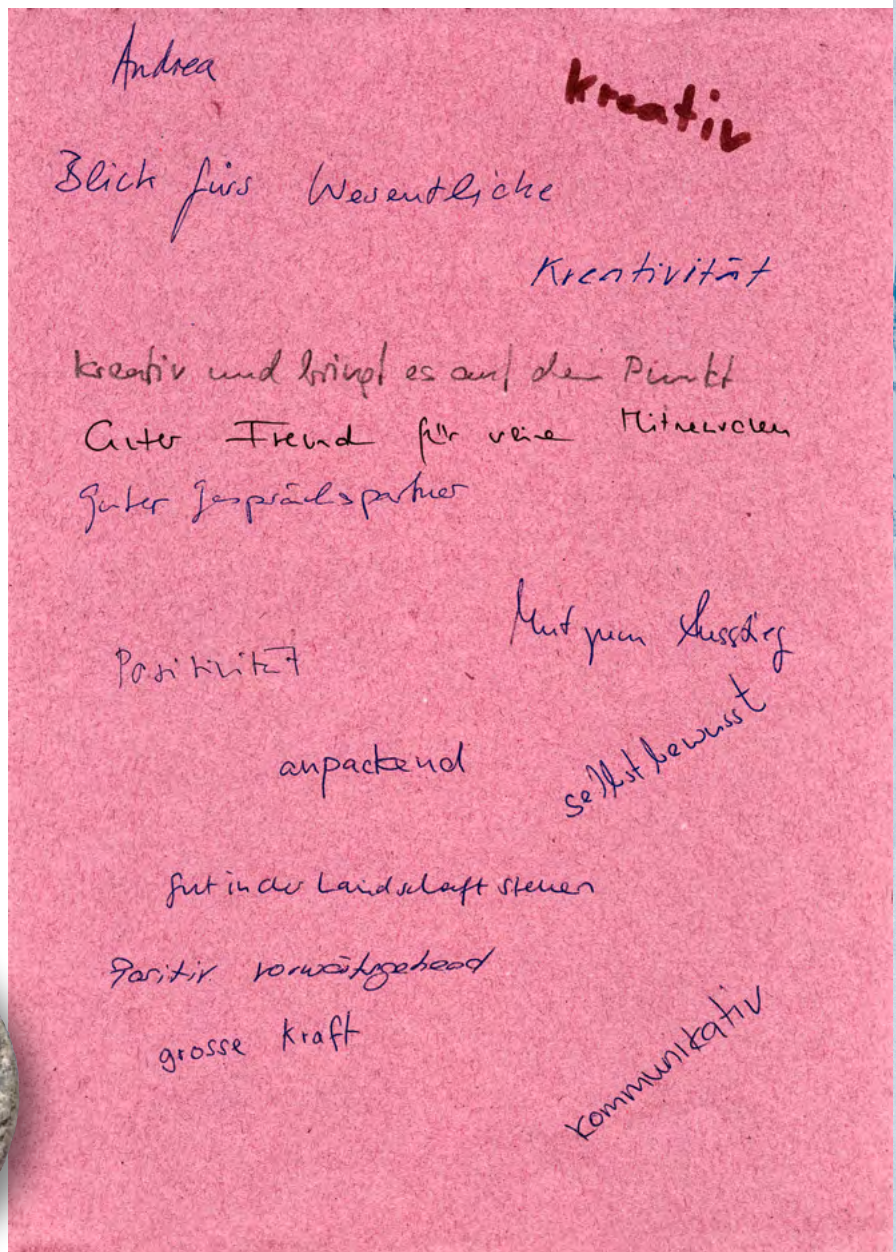 Andrea
kreativ
Blick fürs Wesentliche
Kreativität
kreativ und bringt es auf den Punkt
Guter Freund für seine Mitmenschen
guter Gesprächspartner
Mut zum Ausstieg
Positivität
selbstbewusst
anpackend
gut in der Landschaft stehen
Positiv vorwärtsgehend
grosse Kraft
kommunikativ